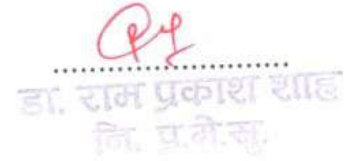 डा. राम प्रकाश शाह
नि. प्र.मे.सु.